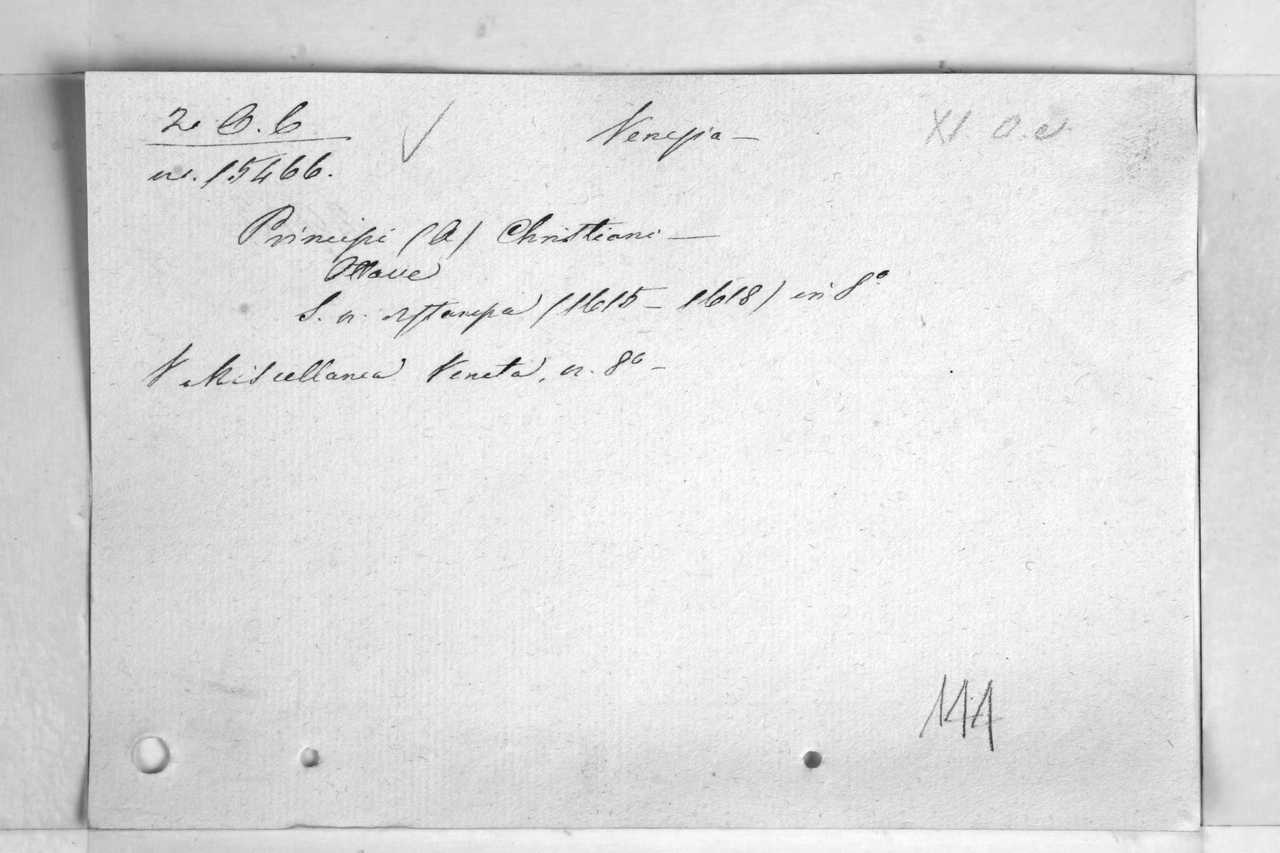 2. B. 6 Venezia –
n. 15466.
Principi (A) Christiani –
Ottave
S. n. stampa (1615 – 1618) in 8°
V Miscellanea Veneta, n. 8° –
144